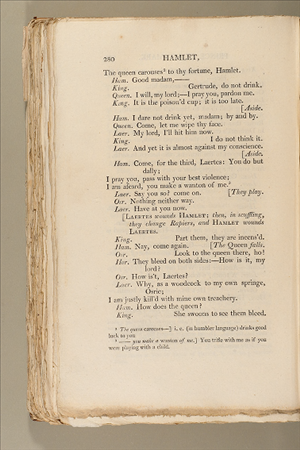 380 HAMLET,
The queen carouses⁸ to thy fortune, Hamlet.
Ham. Good madam,——
King. Gertrude, do not drink.
Queen. I will, my lord;—I pray you, pardon me.
King. It is the poison'd cup; it is too late.
[Aside.
Ham. I dare not drink yet, madam; by and by.
Queen. Come, let me wipe thy face.
Laer. My lord, I'll hit him now.
King. I do not think it.
Laer. And yet it is almost against my conscience.
[Aside.
Ham. Come, for the third, Laertes: You do but
dally;
I pray you, pass with your best violence;
I am afeard, you make a wanton of me.⁹
Laer. Say you so? come on. [They play.
Osr. Nothing neither way.
Laer. Have at you now.
[LAERTES wounds HAMLET; then, in scuffling,
they change Rapiers, and HAMLET wounds
LAERTES.
King. Part them, they are incens'd.
Ham. Nay, come again. [The Queen falls.
Osr. Look to the queen there, ho!
Hor. They bleed on both sides:—How is it, my
lord?
Osr. How is't, Laertes?
Laer. Why, as a woodcock to my own springe,
Osric;
I am justly kill'd with mine own treachery.
Ham. How does the queen?
King. She swoons to see them bleed.
⁸ The queen carouses—] i. e. (in humbler language) drinks good
luck to you.
⁹ —— you make a wanton of me.] You trifle with me as if you
were playing with a child.